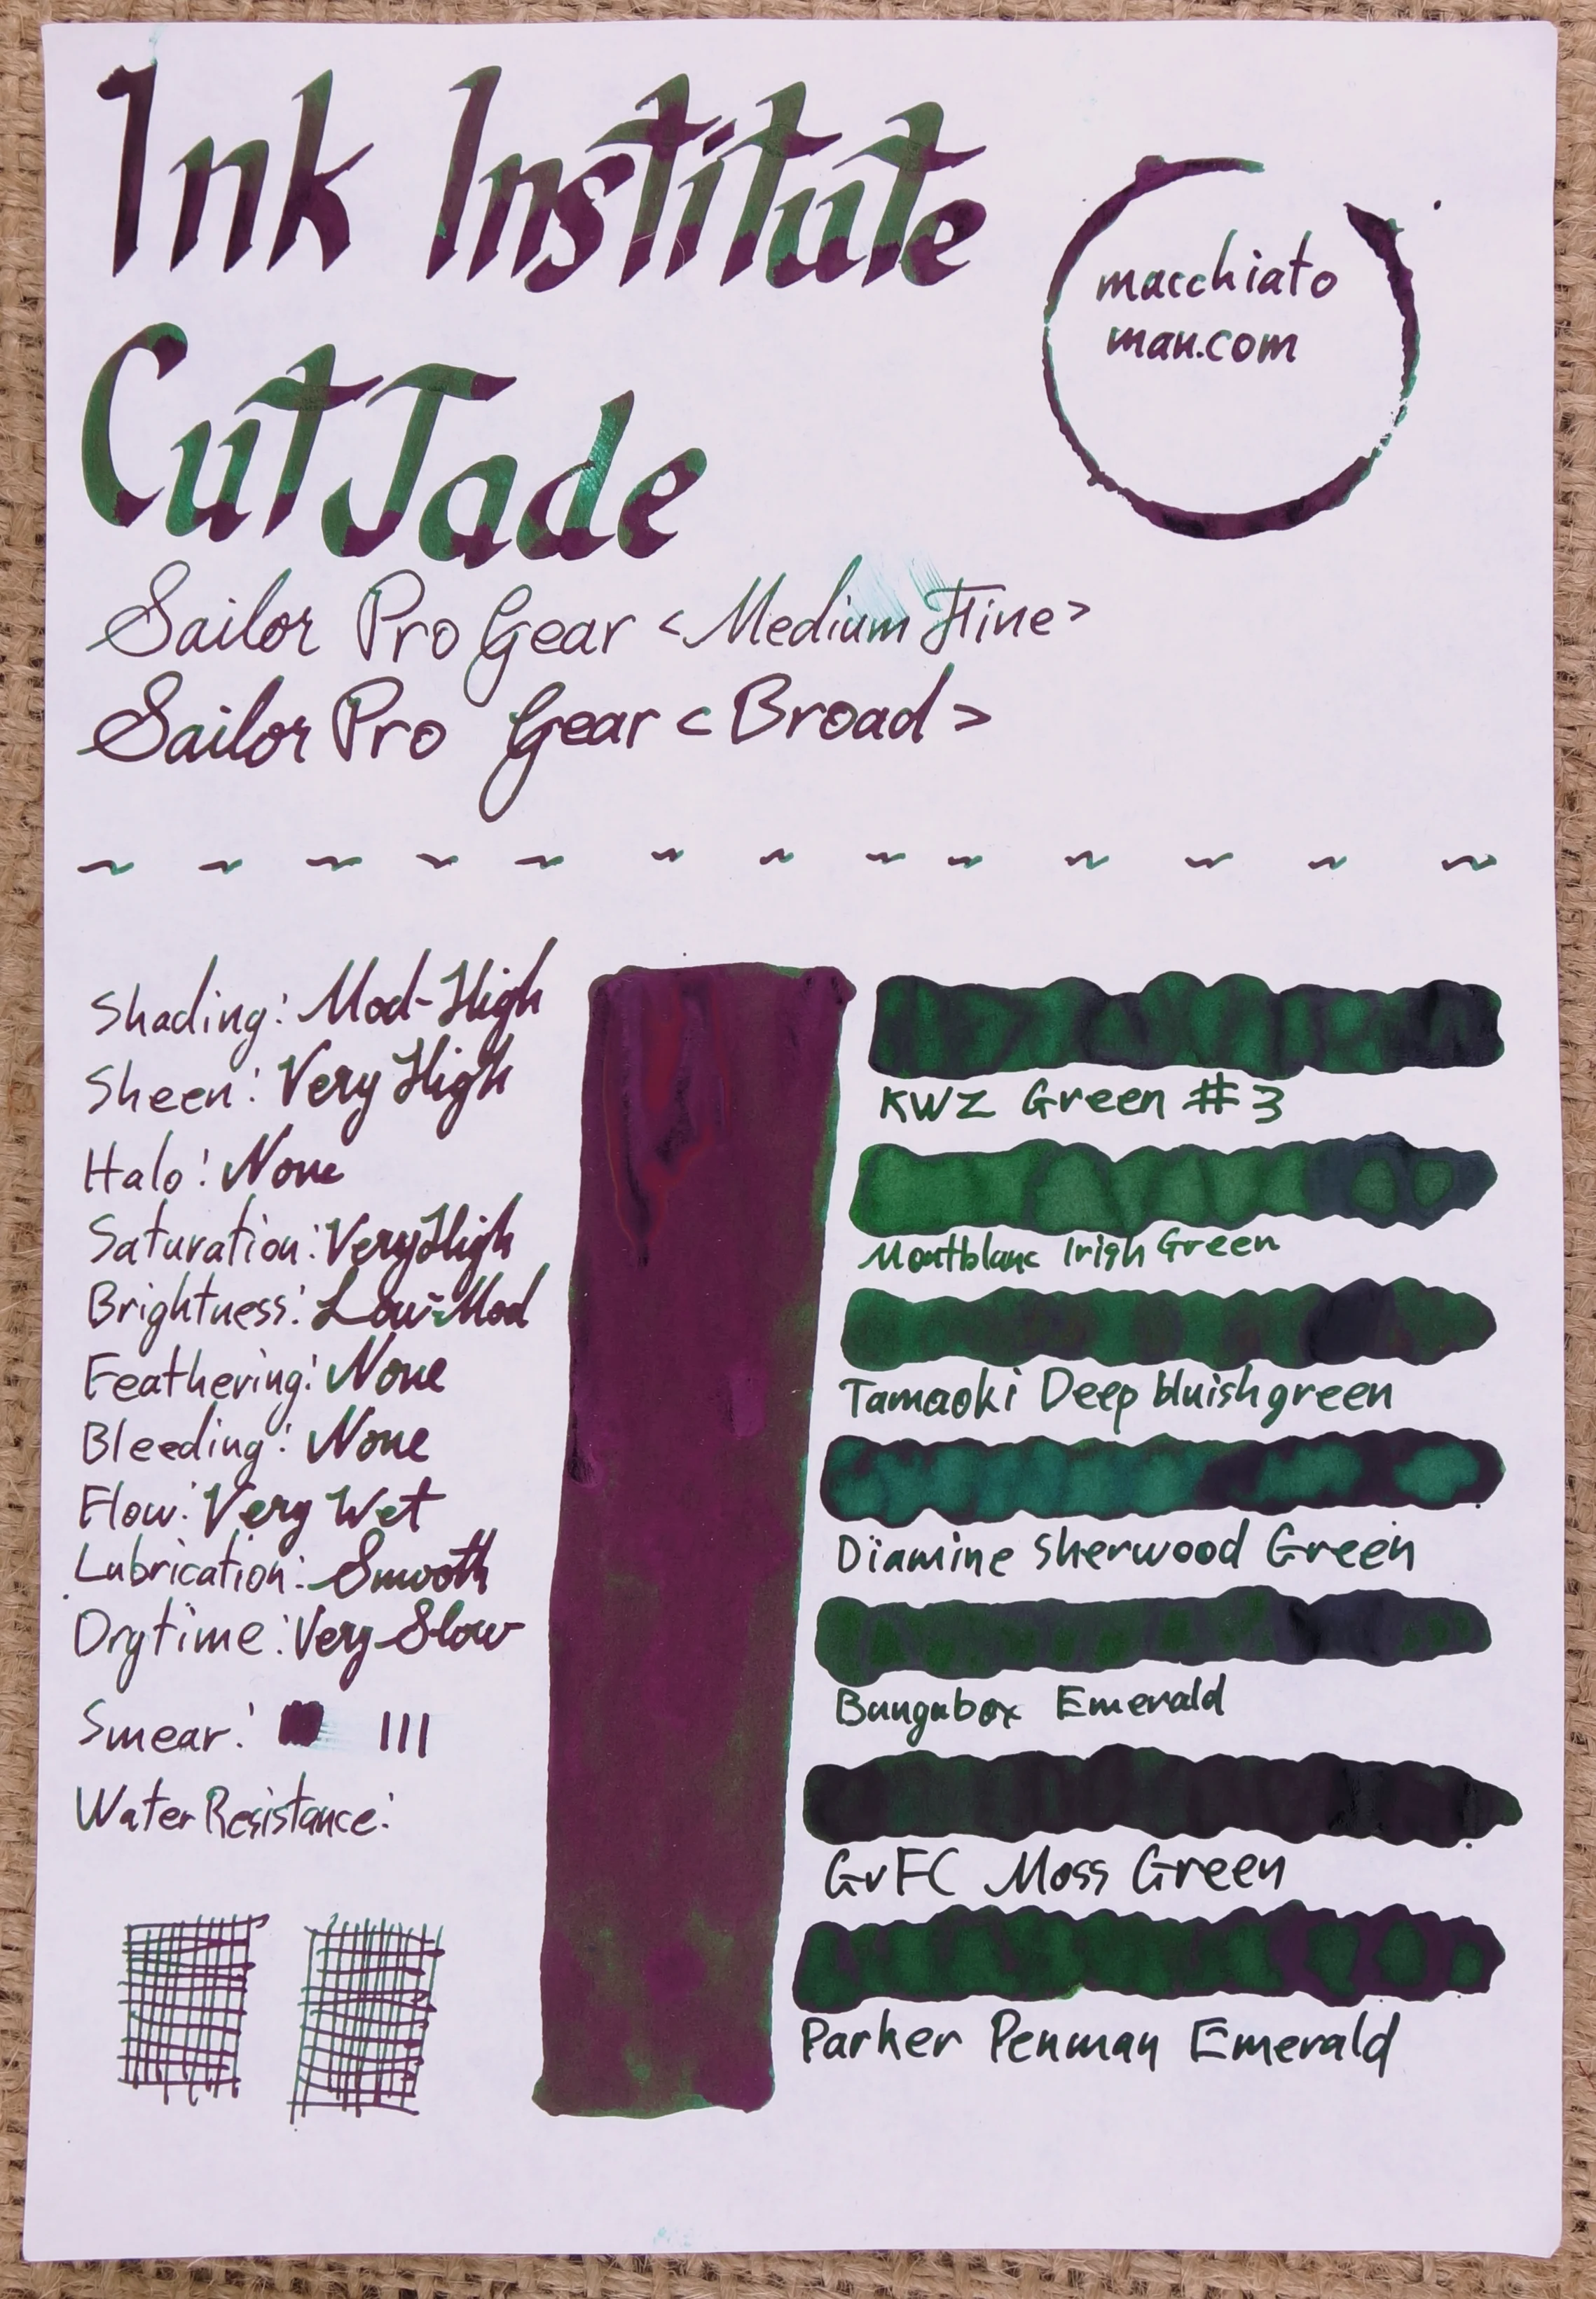 Ink Institute
Cut Jade
macchiato
man.com
Sailor Pro Gear <Medium Fine>
Sailor Pro Gear <Broad>
Shading: Mod-High
Sheen: Very High
Halo: None
Saturation: Very High
Brightness: Low-Mod
Feathering: None
Bleeding: None
Flow: Very Wet
Lubrication: Smooth
Drytime: Very Slow
Smear:
Water Resistance:
KWZ Green #3
Montblanc Irish Green
Tamaoki Deep bluish green
Diamine Sherwood Green
Bungubox Emerald
GvFC Moss Green
Parker Penman Emerald